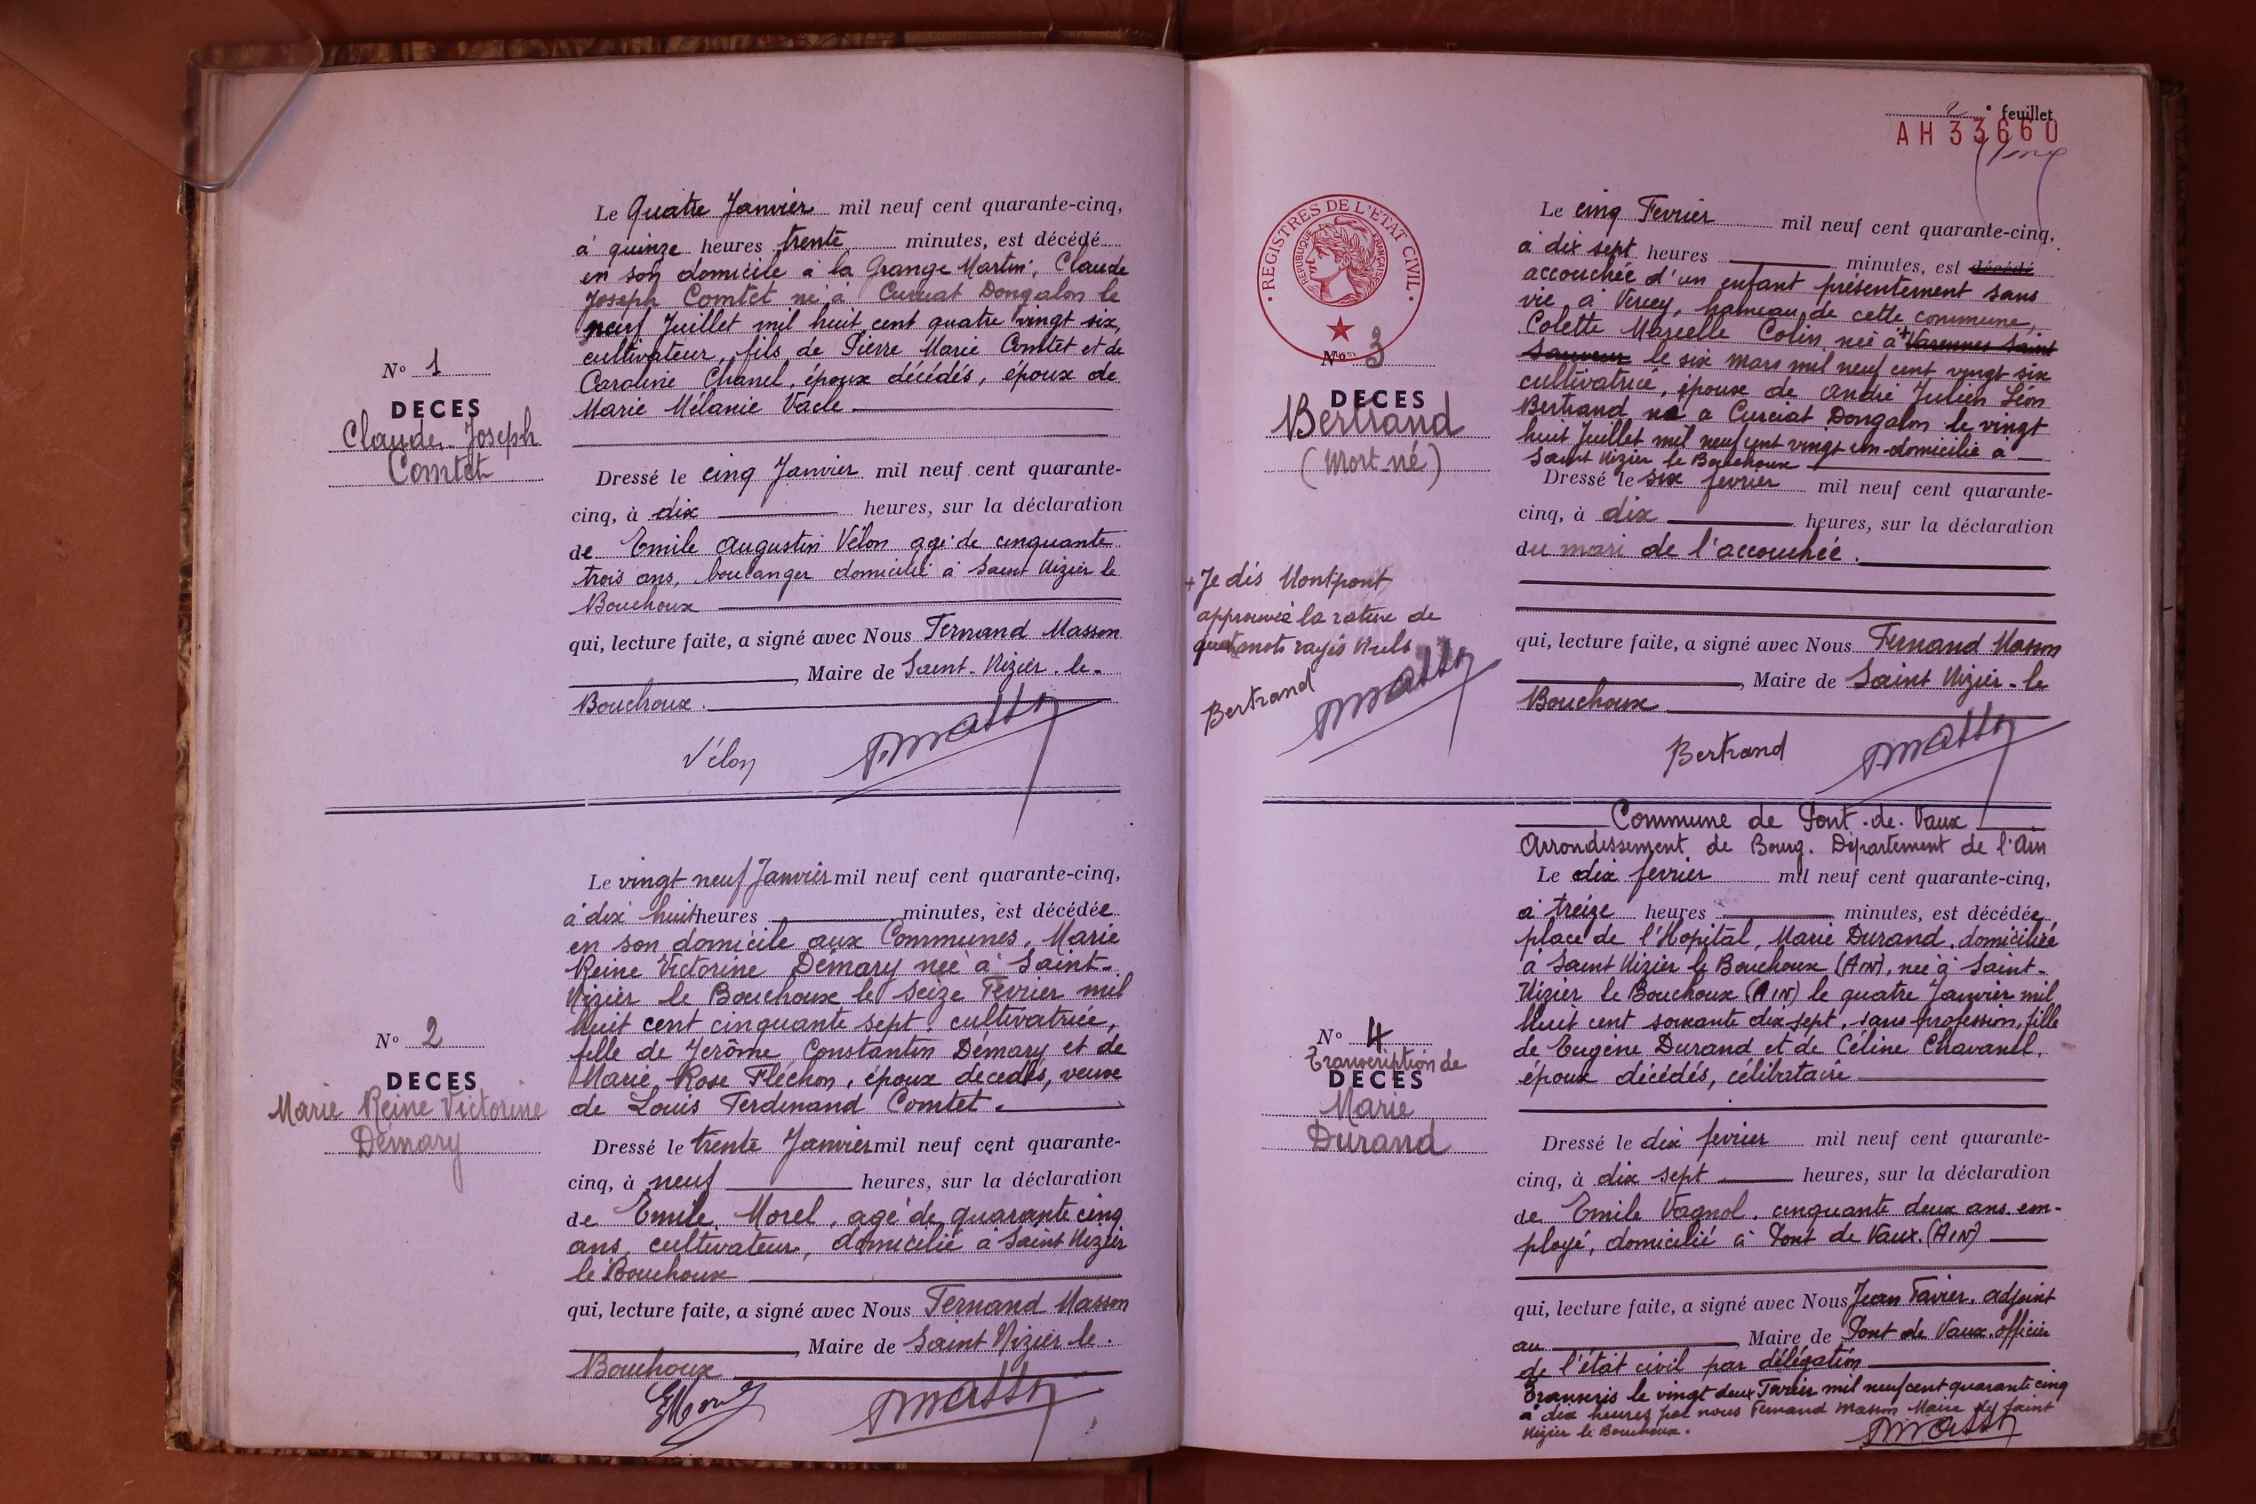 Le Quatre Janvier mil neuf cent quarante-cinq,
à quinze heures trente minutes, est décédé
en son domicile à la Grange Martin, Claude
Joseph Comtet né à Curciat Dongalon le
neuf Juillet mil huit cent quatre vingt six,
cultivateur, fils de Pierre Marie Comtet et de
Caroline Chanel, époux décédés, époux de
Marie Mélanie Vacle.
N° 1
DECES
Claude Joseph
Comtet
Dressé le cinq Janvier mil neuf cent quarante-
cinq, à dix heures, sur la déclaration
de Emile Augustin Vélon agé de cinquante
trois ans, boulanger domicilié à Saint Nizier le
Bouchoux
qui, lecture faite, a signé avec Nous Fernand Masson
, Maire de Saint-Nizier-le-
Bouchoux.
Vélon Masson
Le vingt neuf Janvier mil neuf cent quarante-cinq,
à dix huit heures minutes, est décédée
en son domicile aux Communes, Marie
Reine Victorine Démary née à Saint-
Nizier le Bouchoux le seize Février mil
huit cent cinquante sept. cultivatrice,
fille de Jerôme Constantin Démary et de
Marie Rose Fléchon, époux décédés, veuve
de Louis Ferdinand Comtet.
N° 2
DECES
Marie Reine Victorine
Démary
Dressé le trente Janvier mil neuf cent quarante-
cinq, à neuf heures, sur la déclaration
de Emile Morel, agé de quarante cinq
ans, cultivateur, domicilié à Saint Nizier
le Bouchoux
qui, lecture faite, a signé avec Nous Fernand Masson
, Maire de Saint Nizier le
Bouchoux
EMorel Masson
2 ° feuillet
AH 33660
REGISTRES DE L'ETAT CIVIL
REPUBLIQUE FRANÇAISE
Le cinq Fevrier mil neuf cent quarante-cinq,
à dix sept heures minutes, est décédé
accouchée d'un enfant présentement sans
vie à Vircey, hameau de cette commune,
Colette Marcelle Colin née à + Varennes Saint
Sauveur le six mars mil neuf cent vingt six
cultivatrice, épouse de André Julien Léon
Bertrand né à Curciat Dongalon le vingt
huit Juillet mil neuf cent vingt un domicilié à
Saint Nizier le Bouchoux
N° 3
DECES
Bertrand
(Mort né)
Dressé le six fevrier mil neuf cent quarante-
cinq, à dix heures, sur la déclaration
du mari de l'accouchée.
+ Je dis Montpont
approuvée la rature de
quat mots rayés Nuls
Bertrand Masson
qui, lecture faite, a signé avec Nous Fernand Masson
, Maire de Saint Nizier-le
Bouchoux
Bertrand Masson
Commune de Pont-de-Vaux
Arrondissement de Bourg. Département de l'Ain
Le dix fevrier mil neuf cent quarante-cinq,
à treize heures minutes, est décédée
place de l'Hopital, Marie Durand, domiciliée
à Saint Nizier le Bouchoux (AIN), née à Saint-
Nizier le Bouchoux (AIN) le quatre Janvier mil
huit cent soixante dix sept, sans profession, fille
de Eugène Durand et de Céline Chavanel,
époux décédés, célibataire
N° 4
Transcription de
DECES
Marie
Durand
Dressé le dix fevrier mil neuf cent quarante-
cinq, à dix sept heures, sur la déclaration
de Emile Vagnol, cinquante deux ans, em-
ployé, domicilié à Pont de Vaux. (AIN)
qui, lecture faite, a signé avec Nous Jean Favier, adjoint
au , Maire de Pont de Vaux, officier
de l'état civil par délégation
Transcris le vingt deux Fevrier mil neuf cent quarante cinq
à dix heures par nous Fernand Masson Maire de Saint
Nizier le Bouchoux.
Masson